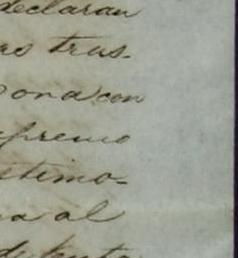 declaran
tras-
ona con
premo
stimo-
a al